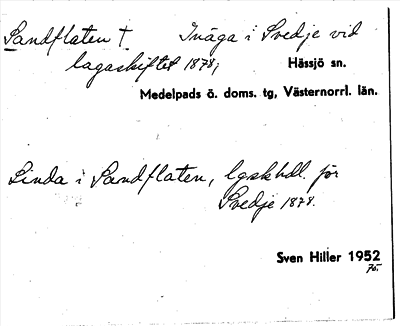 Sandflaten † Inäga i Svedje vid
lagaskiftet 1878;
Hässjö sn.
Medelpads ö. doms. tg, Västernorrl. län.
Linda i Sandflaten, lgskhdl. för
Svedje 1878.
Sven Hiller 1952